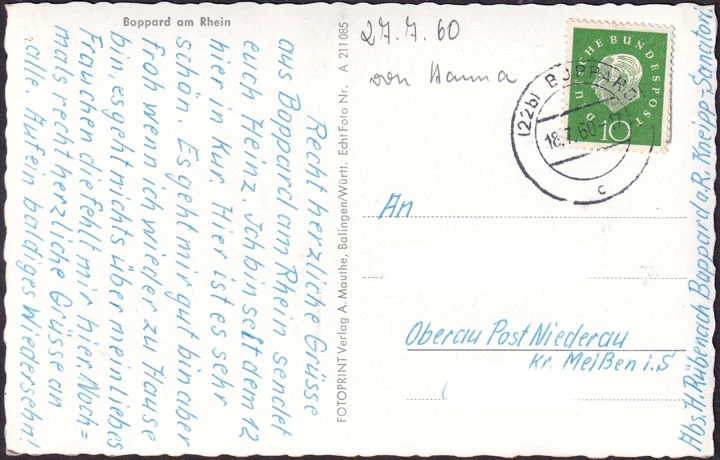 Boppard am Rhein
Recht herzliche Grüsse
aus Boppard am Rhein sendet
euch Heinz. Ich bin seit dem 12
hier in Kur Hier ist es sehr
schön. Es geht mir gut bin aber
froh wenn ich wieder zu Hause
bin, es geht nichts über mein liebes
Frauchen die fehlt mir hier. Noch=
mals recht herzliche Grüsse an
alle. Auf ein baldiges Wiedersehn!
FOTOPRINT Verlag A. Mauthe, Balingen/Württ. Echt Foto Nr. A 211 085
27.7.60
von Hanna
DEUTSCHE BUNDESPOST
10
(22b) BOPPARD
18.7.60
c
An
Oberau Post Niederau
Kr. Meißen i. S
Abs. H. Rübenach Boppard a. R. Kneipp-Sanatori.